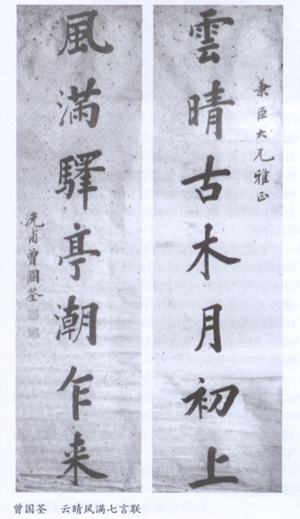 秉臣大兄雅正
雲晴古木月初上
風滿驛亭潮乍来
沅甫曾國荃
曾国荃 云晴风满七言联